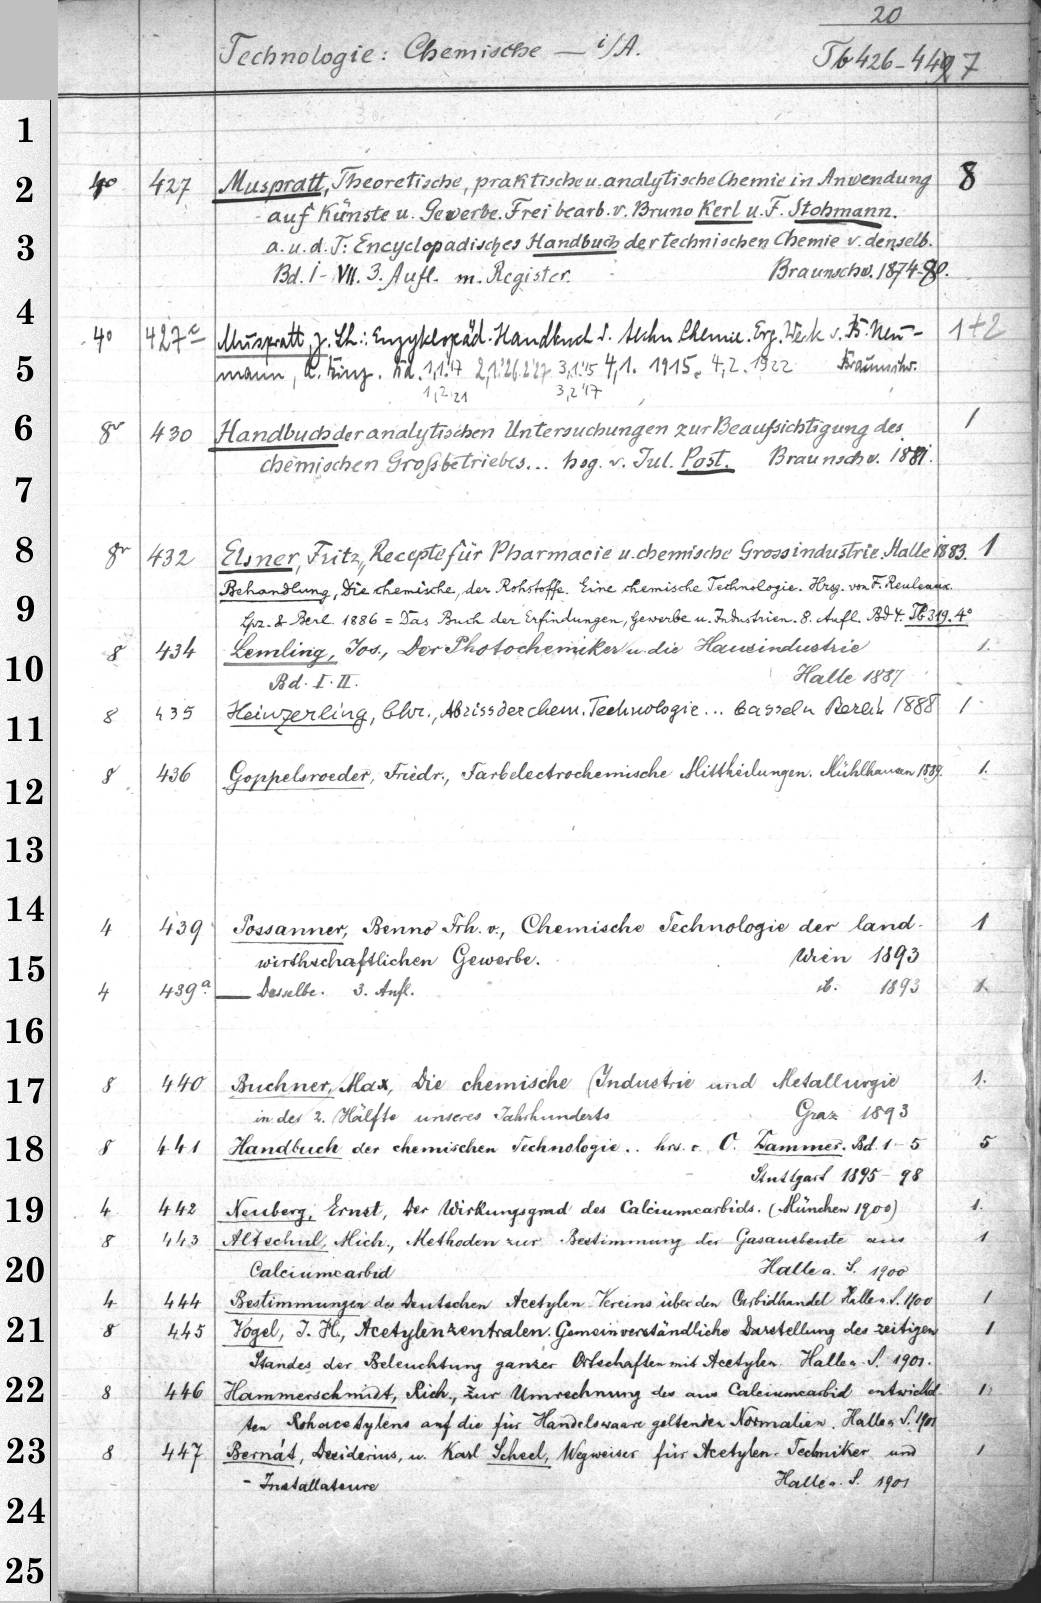 20
Technologie: Chemische — i/A. Tb 426-447
1
2 4° 427 Muspratt, Theoretische, praktische u. analytische Chemie in Anwendung 8
auf Künste u. Gewerbe. Frei bearb. v. Bruno Kerl u. F. Stohmann.
3 a. u. d. T: Encyclopädisches Handbuch der technischen Chemie v. denselb.
Bd. I - VII. 3. Aufl. m. Register. Braunschw. 1874-90.
4
4° 427c Muspratt, J. Sh.: Enzyklopäd. Handbuch d. techn Chemie. Erg. Werk v. B. Neu- 1+2
5 mann, 1,1.'17 2,1.'26.2'27 3,1.'15 4,1. 1915. 4,2. 1922 Braunschw.
1,2'21 3,2'17
6 8° 430 Handbuch der analytischen Untersuchungen zur Beaufsichtigung des 1
chemischen Großbetriebes... hsg. v. Jul. Post. Braunschw. 1881.
7
8 8° 432 Elsner, Fritz, Recepte für Pharmacie u. chemische Grossindustrie. Halle 1883. 1
Behandlung, Die chemische, der Rohstoffe. Eine chemische Technologie. Hrsg. von F. Reuleaux.
9 Lpz. & Berl. 1886 = Das Buch der Erfindungen, Gewerbe u. Industrien. 8. Aufl. Bd 4. Tb 319. 4°
8 434 Lemling, Jos., Der Photochemiker u. die Hausindustrie 1.
10 Bd. I. II. Halle 1887
8 435 Heinzerling, Chr., Abriss der chem. Technologie... Cassel u Berlin 1888 1
11
8 436 Goppelsroeder, Friedr., Farbelectrochemische Mittheilungen. Mühlhausen 1889. 1.
12
13
14
4 439 Possanner, Benno Frh. v., Chemische Technologie der land- 1
wirthschaftlichen Gewerbe. Wien 1893
15
4 439a. — Dasselbe. 3. Aufl. ib. 1893 1.
16
17 8 440 Buchner, Max, Die chemische Industrie und Metallurgie 1.
in der 2. Hälfte unseres Jahrhunderts Graz 1893
18 8 441 Handbuch der chemischen Technologie.. hrs. v. O. Dammer. Bd. 1-5 5
Stuttgart 1895-98
19 4 442 Neuberg, Ernst, Der Wirkungsgrad des Calciumcarbids. (München 1900) 1.
8 443 Altschul, Mich., Methoden zur Bestimmung der Gasausbeute aus 1
20 Calciumcarbid Halle a. S. 1900
4 444 Bestimmungen des Deutschen Acetylen-Vereins über den Carbidhandel Halle a. S. 1900 1
21 8 445 Vogel, J. H., Acetylenzentralen. Gemeinverständliche Darstellung des zeitigen 1
Standes der Beleuchtung ganzer Ortschaften mit Acetylen. Halle a. S. 1901.
22 8 446 Hammerschmidt, Rich., Zur Umrechnung des aus Calciumcarbid entwickel- 1
ten Rohacetylens auf die für Handelswaare geltenden Normalien. Halle a S. 1901
23 8 447 Bernát, Desiderius, u. Karl Scheel, Wegweiser für Acetylen-Techniker und 1
- Installateure Halle a. S. 1901
24
25